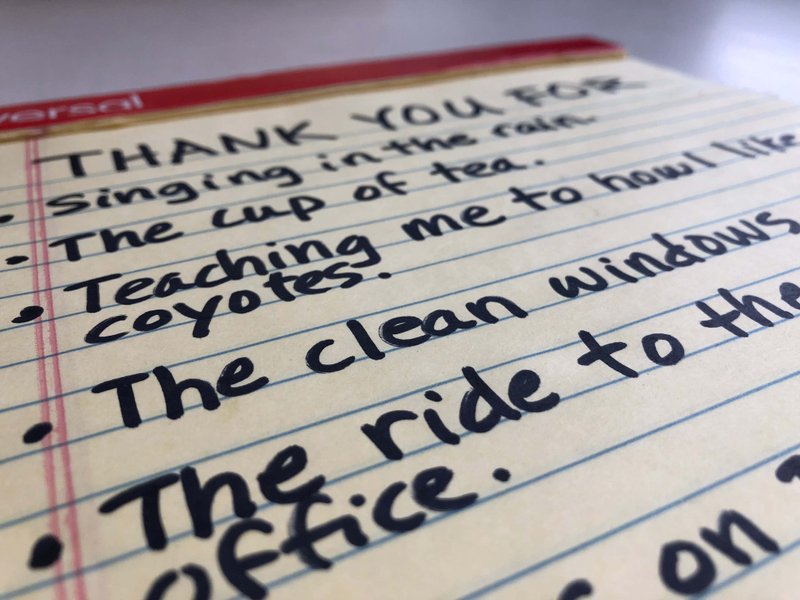 versal
THANK YOU FOR
• Singing in the rain.
• The cup of tea.
• Teaching me to howl like
coyotes.
• The clean windows
• The ride to the
office.
on